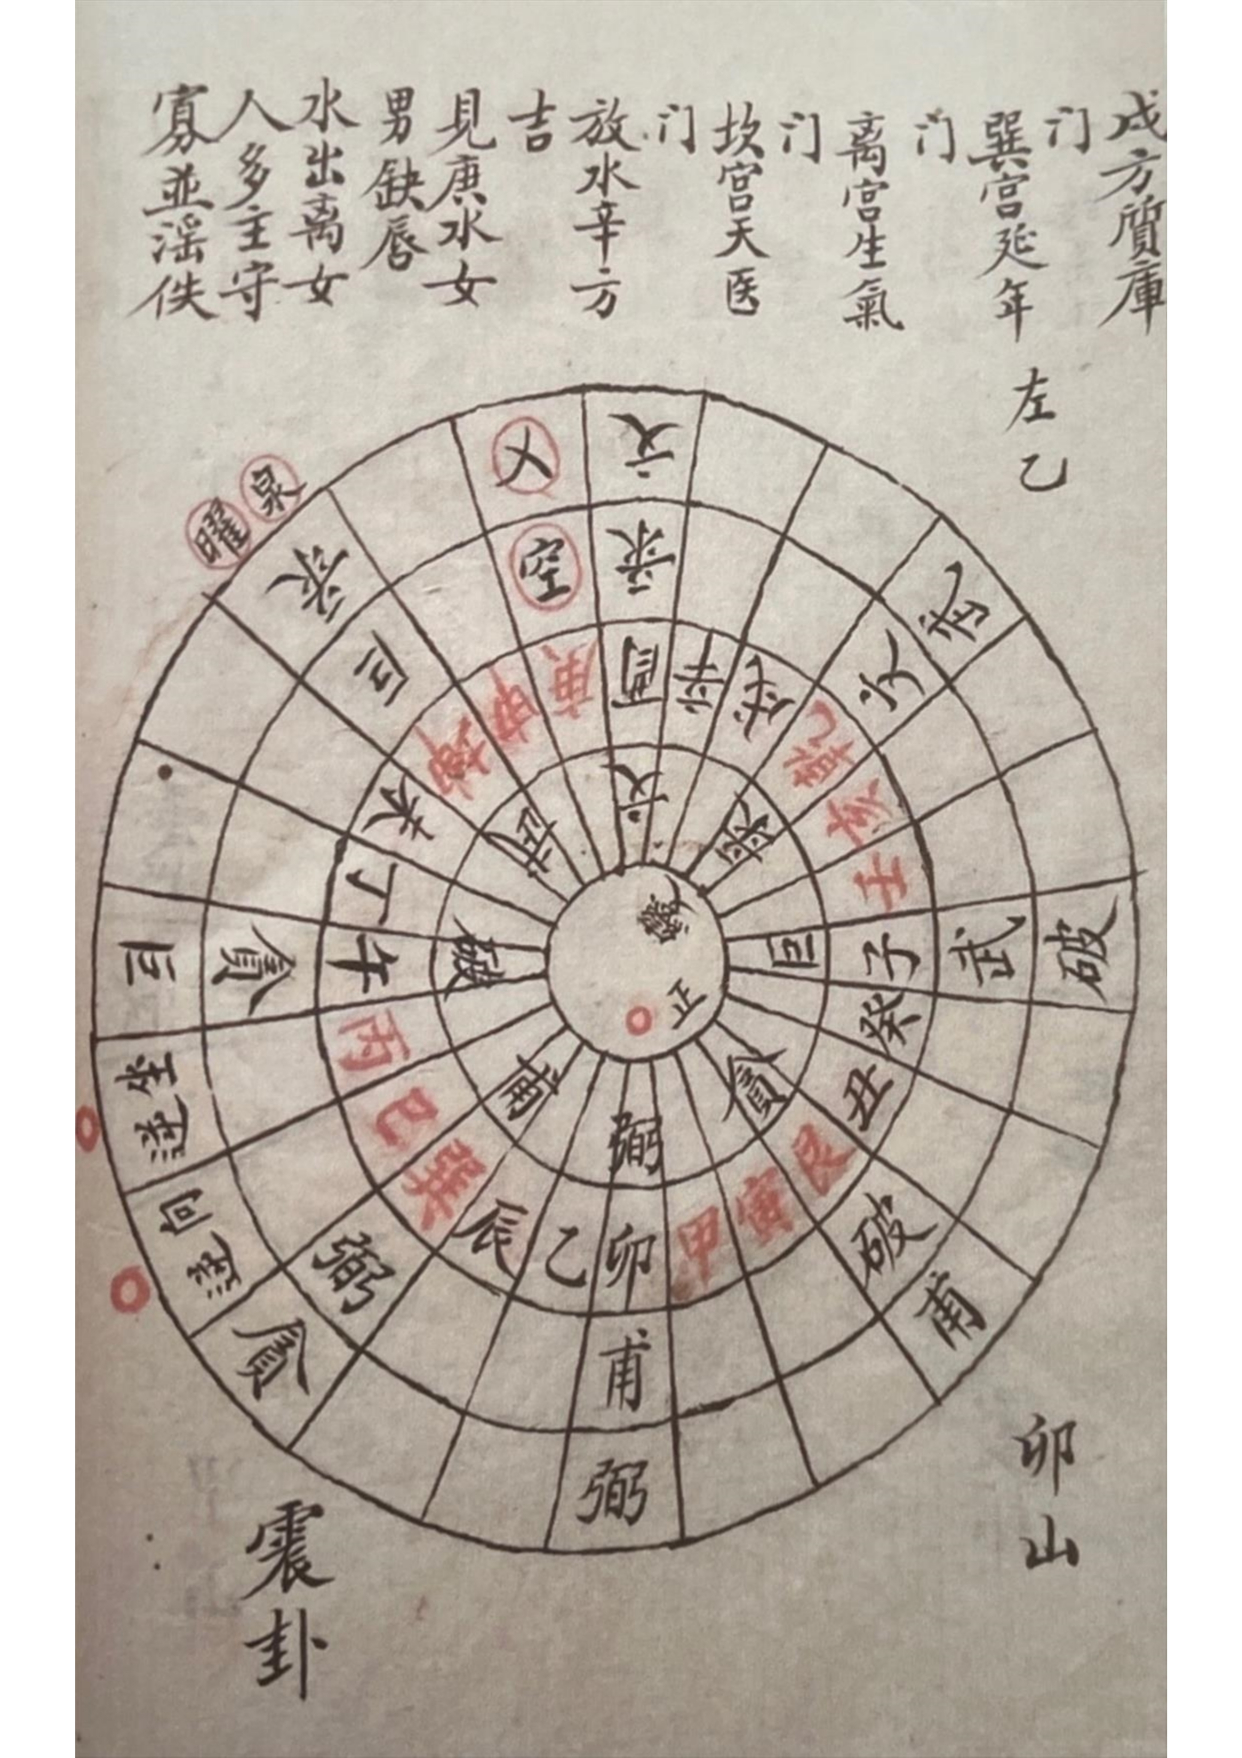 戌方質庫
门
巽宫延年
门
离宫生氣
门
坎宫天医
门
放水辛方
吉
見庚水女
男缺唇
水出离女
人多主守
寡並滛佚
左乙
泉
曜
乂
文
破
甫
弼
貪
向
坐
巨
空
文
武
破
甫
弼
貪
巨
庚
酉
辛
戌
乾
亥
壬
子
癸
丑
艮
寅
甲
卯
乙
辰
巽
巳
丙
午
丁
未
坤
申
武
文
巨
貪
弼
甫
破
正
卯山
震卦